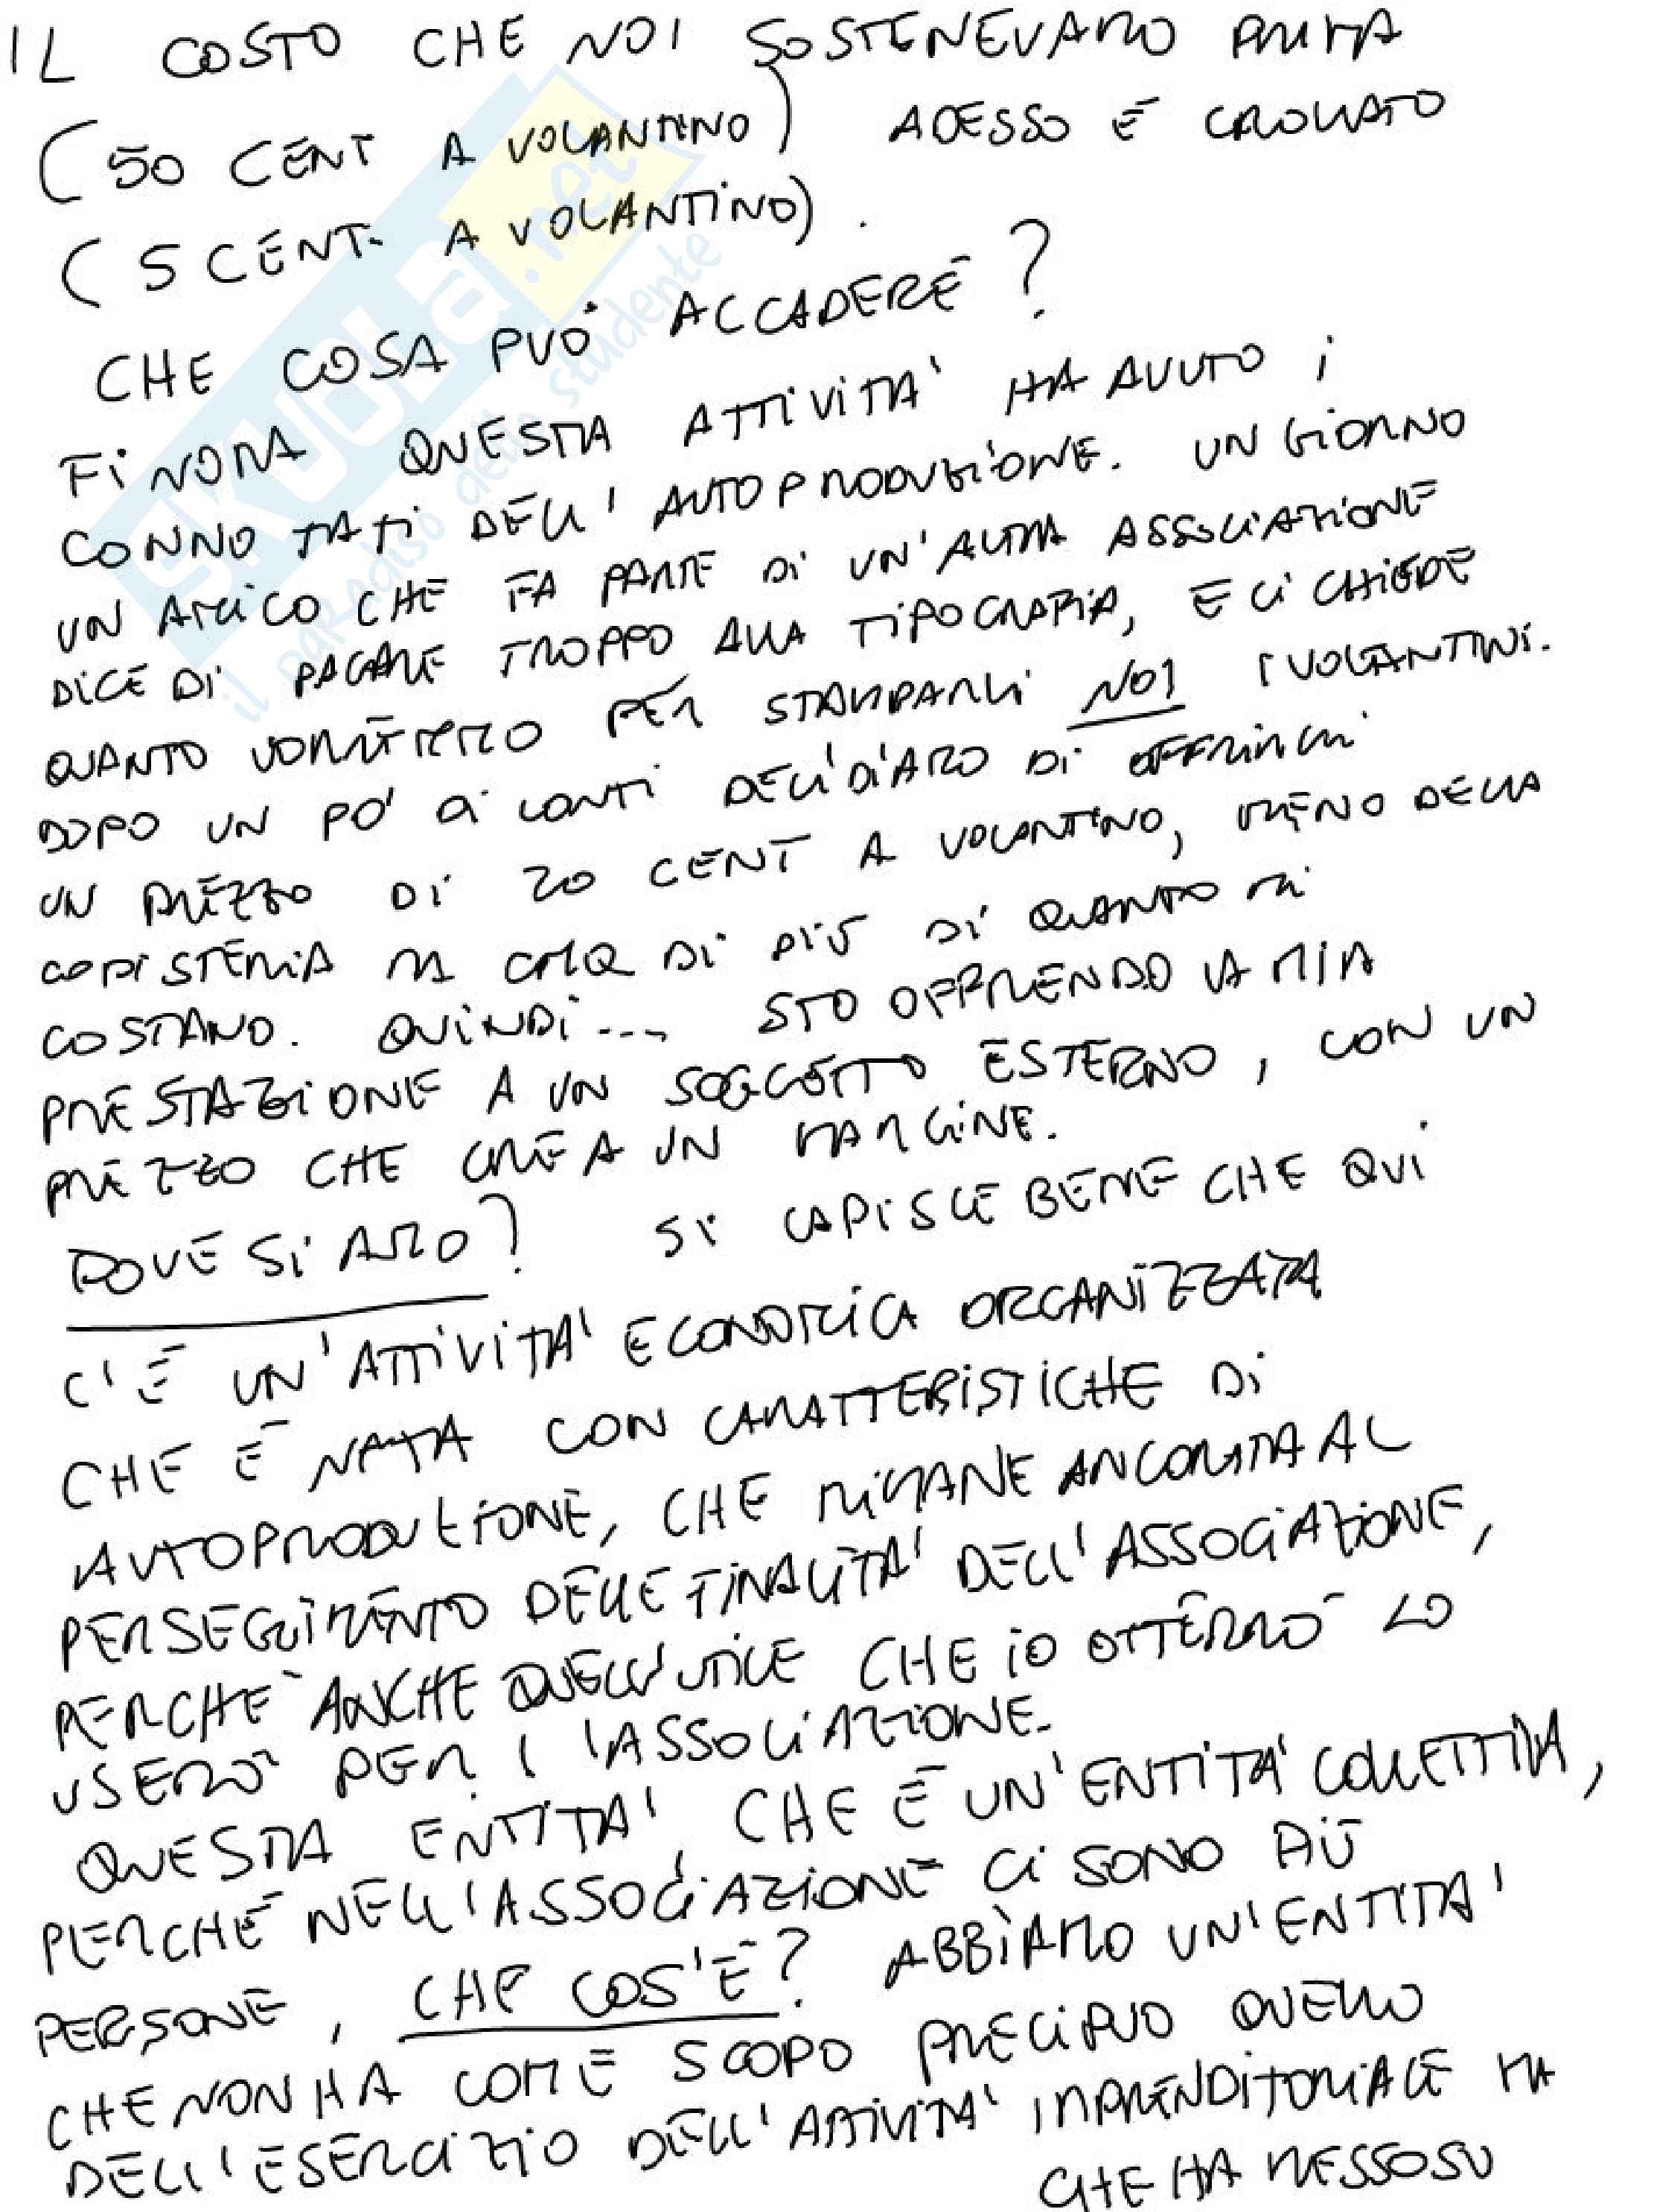 IL COSTO CHE NOI SOSTENEVAMO PRIMA
(50 CENT A VOLANTINO) ADESSO È CROLLATO
(5 CENT. A VOLANTINO).
CHE COSA PUÒ ACCADERE?
FINORA QUESTA ATTIVITÀ HA AVUTO I
CONNOTATI DELL'AUTOPRODUZIONE. UN GIORNO
UN AMICO CHE FA PARTE DI UN'ALTRA ASSOCIAZIONE
DICE DI PAGARE TROPPO ALLA TIPOGRAFIA, E CI CHIEDE
QUANTO VORREMMO PER STAMPARLI NOI I VOLANTINI.
DOPO UN PO' DI CONTI DECIDIAMO DI OFFRIRGLI
UN PREZZO DI 20 CENT A VOLANTINO, MENO DELLA
COPISTERIA MA DI PIÙ DI QUANTO MI
COSTANO. QUINDI... STO OFFRENDO LA MIA
PRESTAZIONE A UN SOGGETTO ESTERNO, CON UN
PREZZO CHE CREA UN MARGINE.
DOVE SIAMO? SI CAPISCE BENE CHE QUI
C'È UN'ATTIVITÀ ECONOMICA ORGANIZZATA
CHE È NATA CON CARATTERISTICHE DI
AUTOPRODUZIONE, CHE RIMANE ANCORATA AL
PERSEGUIMENTO DELLE FINALITÀ DELL'ASSOCIAZIONE,
PERCHÈ ANCHE QUELL'UTILE CHE IO OTTERRÒ LO
USERÒ PER L'ASSOCIAZIONE.
QUESTA ENTITÀ, CHE È UN'ENTITÀ COLLETTIVA,
PERCHÉ NELL'ASSOCIAZIONE CI SONO PIÙ
PERSONE, CHE COS'È? ABBIAMO UN'ENTITÀ
CHE NON HA COME SCOPO PRECIPUO QUELLO
DELL'ESERCIZIO DELL'ATTIVITÀ IMPRENDITORIALE MA
CHE HA MESSO SU
SKUOLA.net
il paradiso dello studente